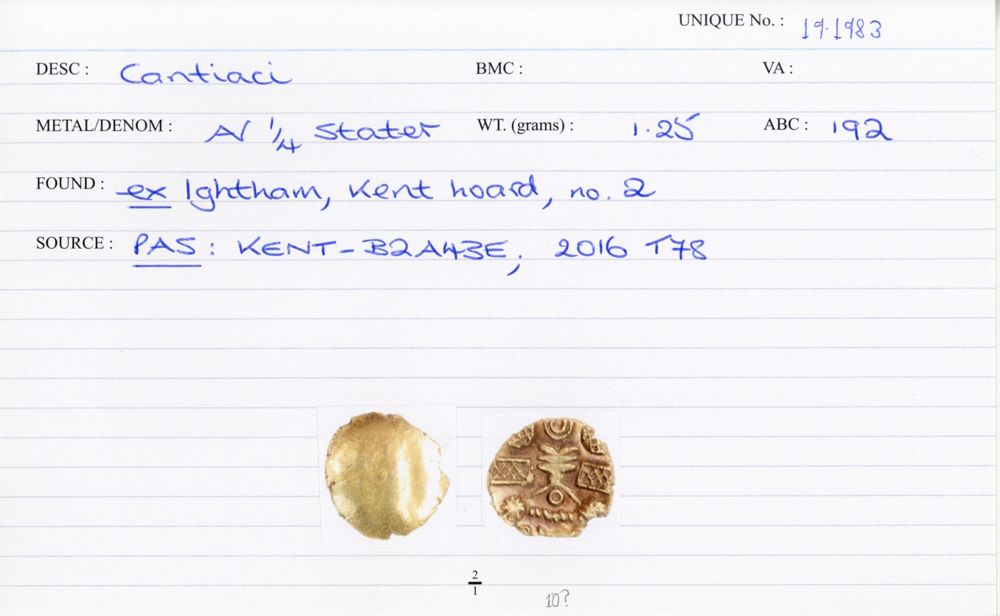 UNIQUE No. : 19.1983
DESC : Cantiaci BMC : VA :
METAL/DENOM : AV 1/4 Stater WT. (grams) : 1.25 ABC : 192
FOUND : ex Ightham, Kent hoard, no. 2
SOURCE : PAS : KENT-B2A43E; 2016 T78
2
1
10?